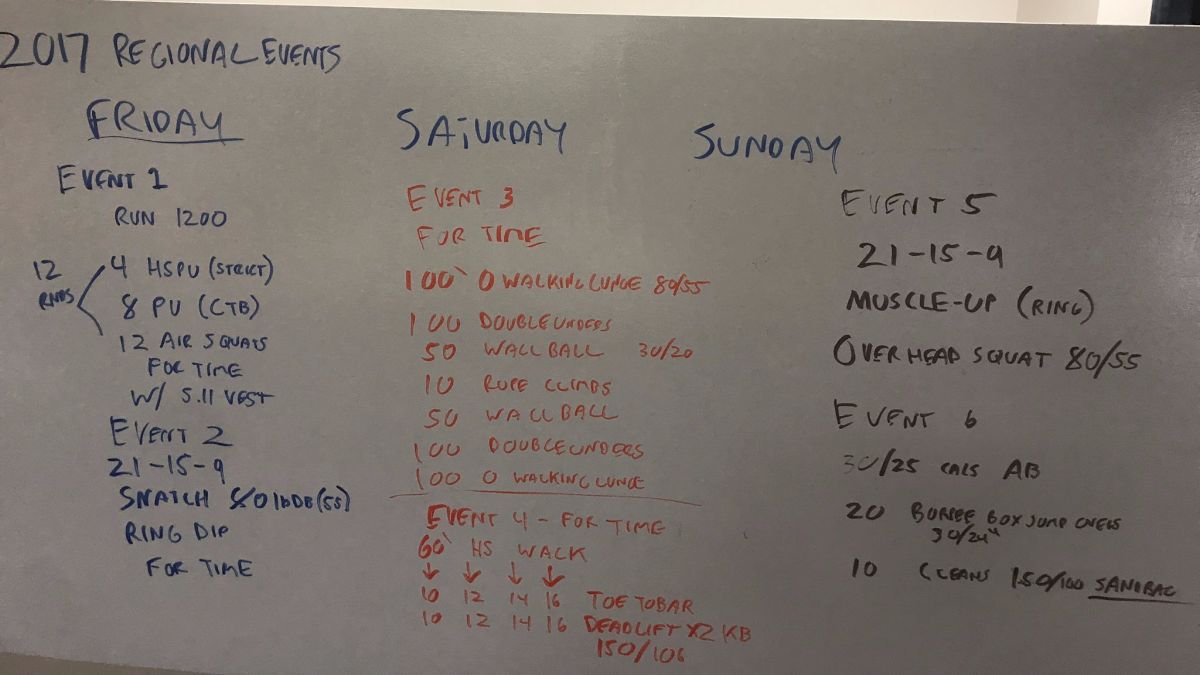 2017 REGIONAL EVENTS
FRIDAY
EVENT 1
RUN 1200
12 RNDS
4 HSPU (STRICT)
8 PU (CTB)
12 AIR SQUATS
FOR TIME
W/ 5.11 VEST
EVENT 2
21-15-9
SNATCH 80lb DB (55)
RING DIP
FOR TIME
SATURDAY
EVENT 3
FOR TIME
100` O WALKING LUNGE 80/55
100 DOUBLEUNDERS
50 WALL BALL 30/20
10 ROPE CLIMBS
50 WALL BALL
100 DOUBLEUNDERS
100 O WALKING LUNGE
EVENT 4 - FOR TIME
60` HS WALK
↓ ↓ ↓ ↓
10 12 14 16 TOE TO BAR
10 12 14 16 DEADLIFT X2 KB
150/106
SUNDAY
EVENT 5
21-15-9
MUSCLE-UP (RING)
OVERHEAD SQUAT 80/55
EVENT 6
30/25 CALS AB
20 BURPEE BOX JUMP OVERS
30/24"
10 CLEANS 150/100 SANDBAG